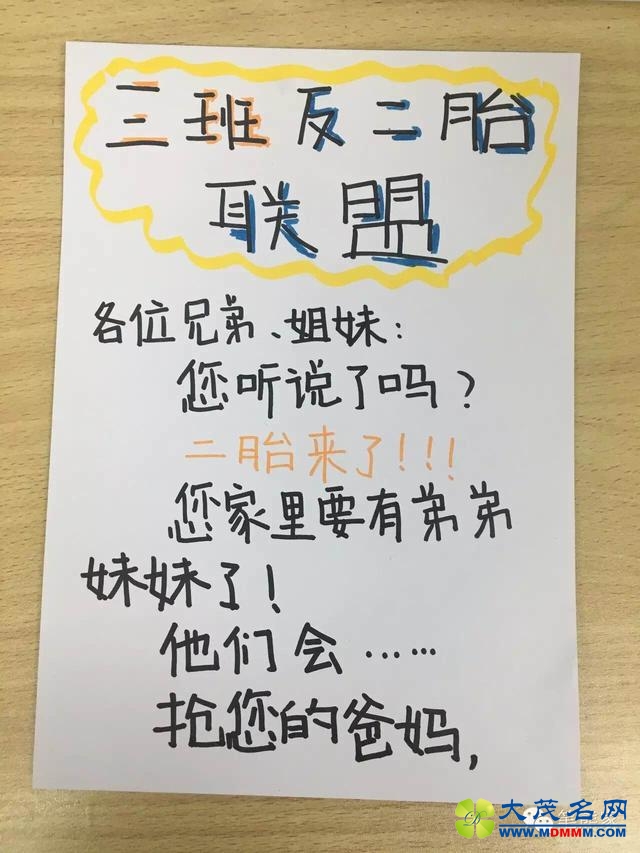 三班反二胎
联盟
各位兄弟、姐妹:
您听说了吗?
二胎来了!!!
您家里要有弟弟
妹妹了!
他们会……
抢您的爸妈,
大茂名网
WWW.MDMMM.COM